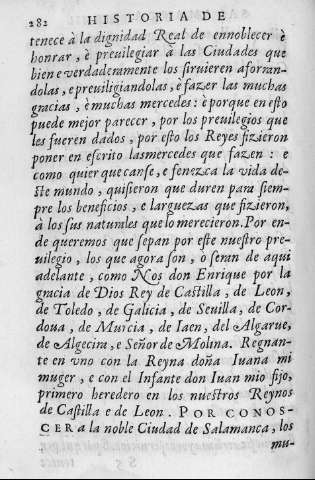 282 HISTORIA DE
tenece à la dignidad Real de ennoblecer è
honrar, è preuilegiar à las Ciudades que
bien e verdaderamente los siruieren aforran-
dolas, e preuiligiandolas, e fazer las muchas
gracias, è muchas mercedes: è porque en esto
puede mejor parecer, por los preuilegios que
les fueren dados, por esto los Reyes fizieron
poner en escrito las mercedes que fazen: e
como quier que canse, e fenezca la vida de-
ste mundo, quisieron que duren para siem-
pre los beneficios, e larguezas que fizieron,
à los sus naturales que lo merecieron. Por en-
de queremos que sepan por este nuestro pre-
uilegio, los que agora son, ò seran de aqui
adelante, como Nos don Enrique por la
gracia de Dios Rey de Castilla, de Leon,
de Toledo, de Galicia, de Seuilla, de Cor-
doua, de Murcia, de Iaen, del Algarue,
de Algecira, e Señor de Molina. Regnan-
te en vno con la Reyna doña Iuana mi
muger, e con el Infante don Iuan mio fijo,
primero heredero en los nuestros Reynos
de Castilla e de Leon. POR CONOS-
CER a la noble Ciudad de Salamanca, los
mu-